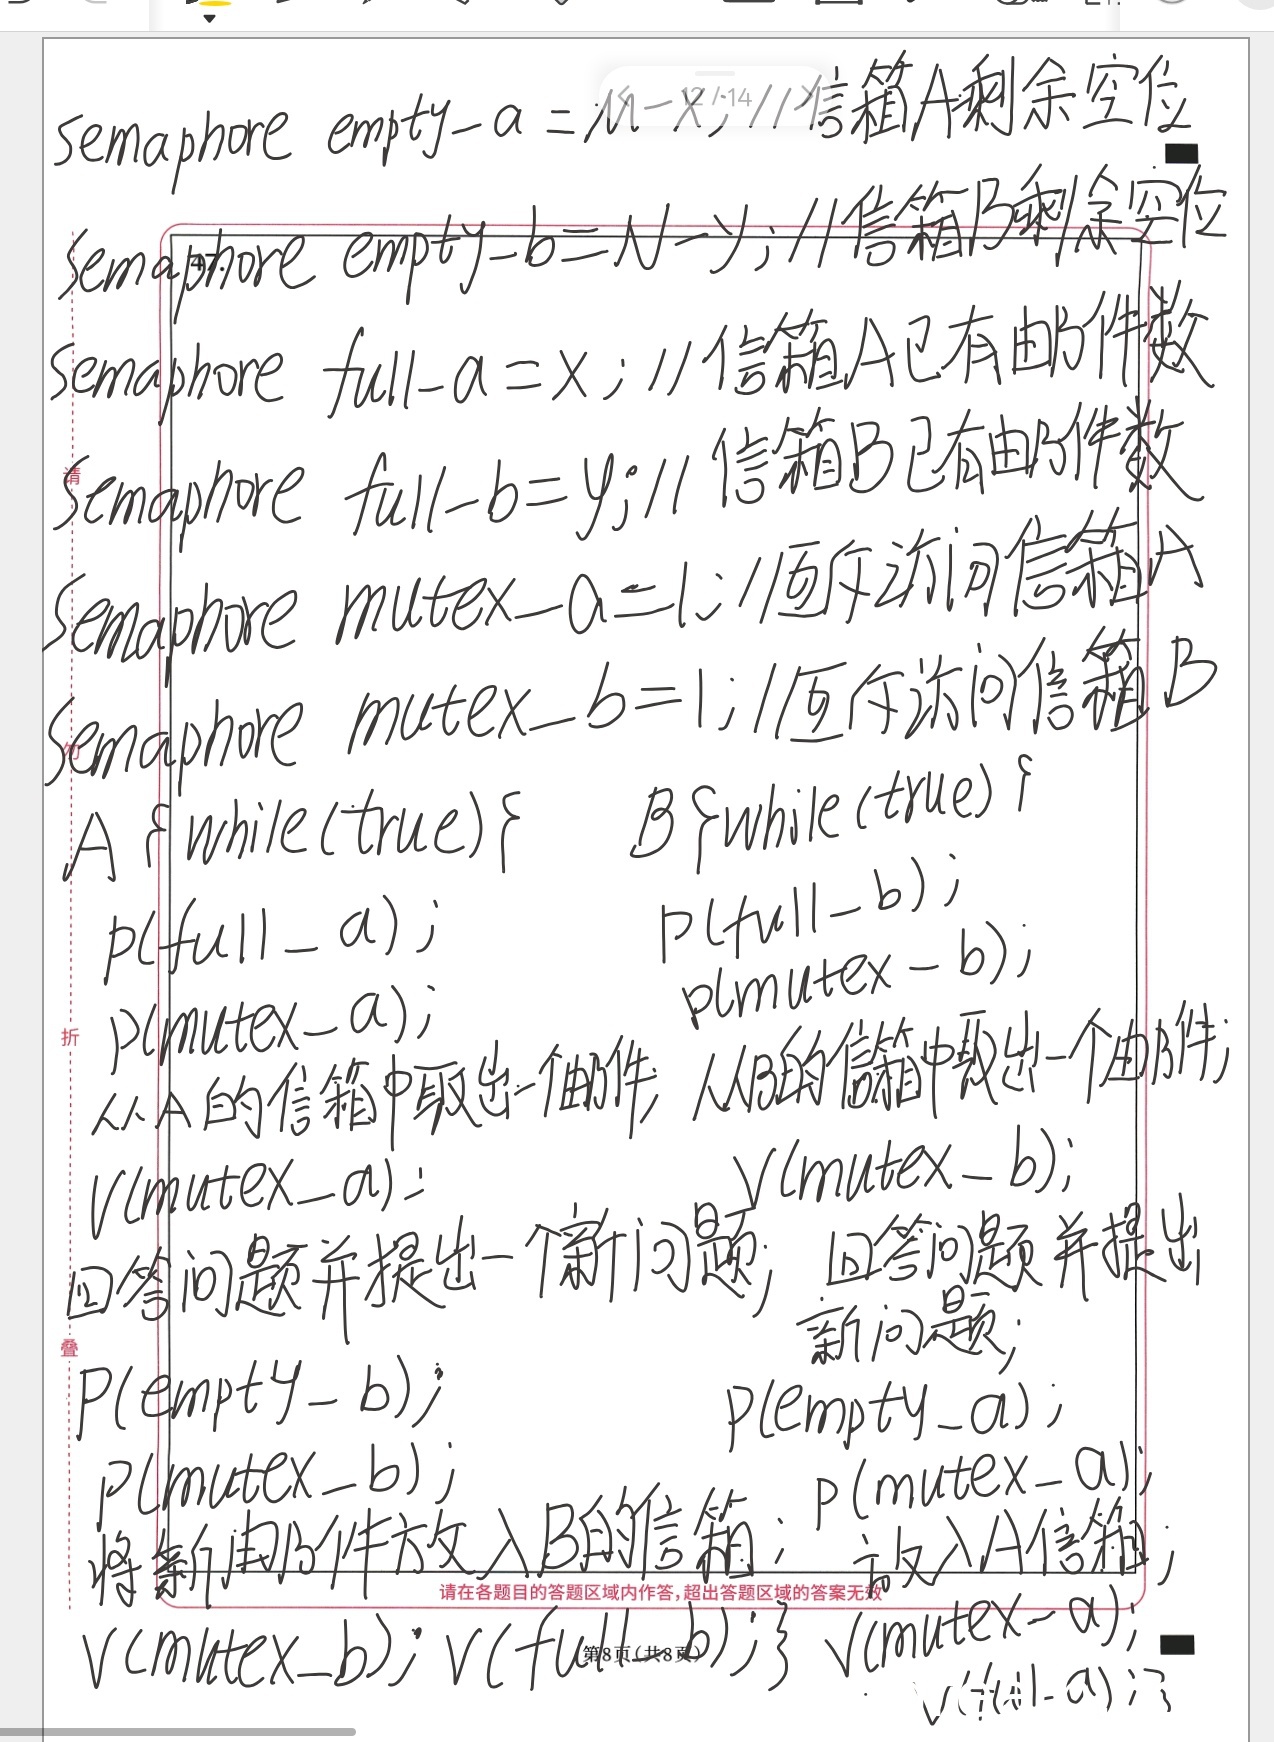 12/14
semaphore empty_a = M-x; //信箱A剩余空位
semaphore empty_b=N-y; //信箱B剩余空位
47.
semaphore full_a=x; //信箱A已有邮件数
semaphore full_b=y; //信箱B已有邮件数
semaphore mutex_a=1; //互斥访问信箱A
semaphore mutex_b=1; //互斥访问信箱B
A{while(true){
p(full_a);
p(mutex_a);
从A的信箱中取出一个邮件;
V(mutex_a);
回答问题并提出一个新问题;
P(empty_b);
p(mutex_b);
将新邮件放入B的信箱;
V(mutex_b); V(full_b);}
B{while(true){
P(full_b);
p(mutex_b);
从B的信箱中取出一个邮件;
V(mutex_b);
回答问题并提出
新问题;
P(empty_a);
P(mutex_a);
放入A信箱;
V(mutex_a);
V(full_a);}
请勿折叠
请在各题目的答题区域内作答,超出答题区域的答案无效
第8页(共8页)